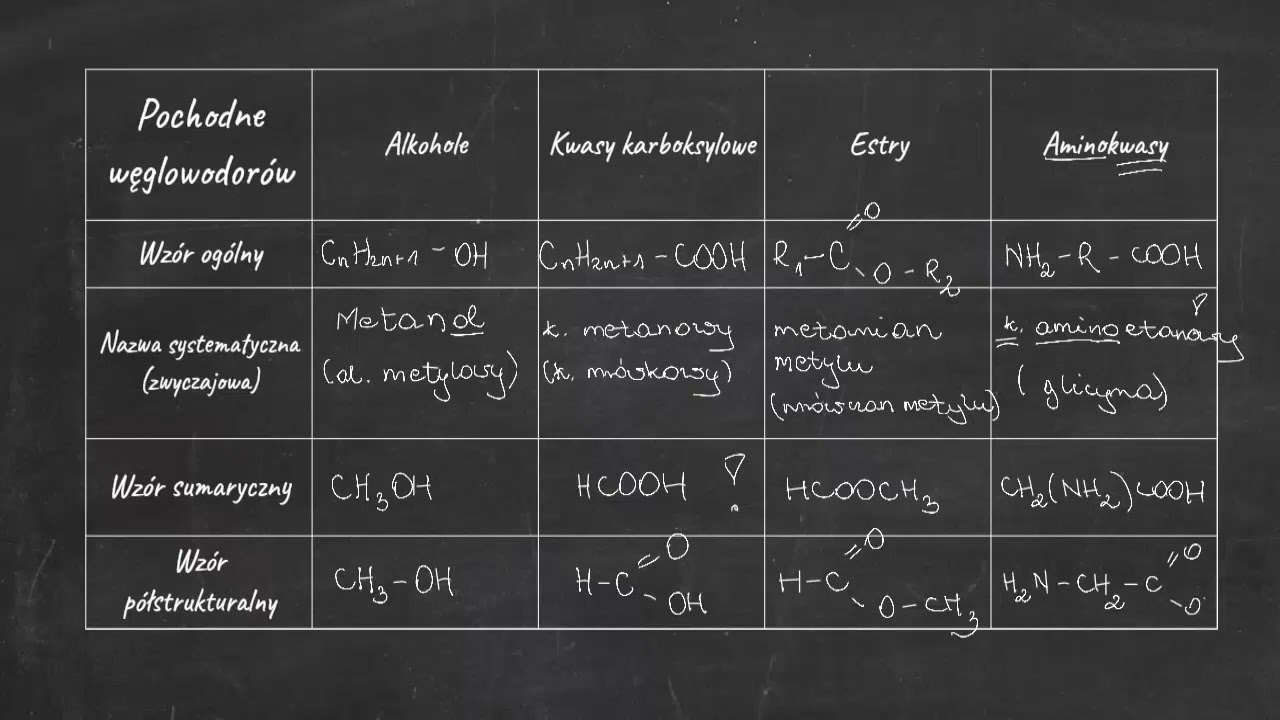 Pochodne
węglowodorów
Alkohole
Kwasy karboksylowe
Estry
Aminokwasy
Wzór ogólny
CnH2n+1 - OH
CnH2n+1 - COOH
R1-C
=O
-O-R2
NH2-R-COOH
Nazwa systematyczna
(zwyczajowa)
Metanol
(al. metylowy)
k. metanowy
(k. mrówkowy)
metanian
metylu
(mrówczan metylu)
k. aminoetanowy
(glicyna)
Wzór sumaryczny
CH3OH
HCOOH !
HCOOCH3
CH2(NH2)COOH
Wzór
półstrukturalny
CH3-OH
H-C
=O
-OH
H-C
=O
-O-CH3
H2N-CH2-C
=O
-O